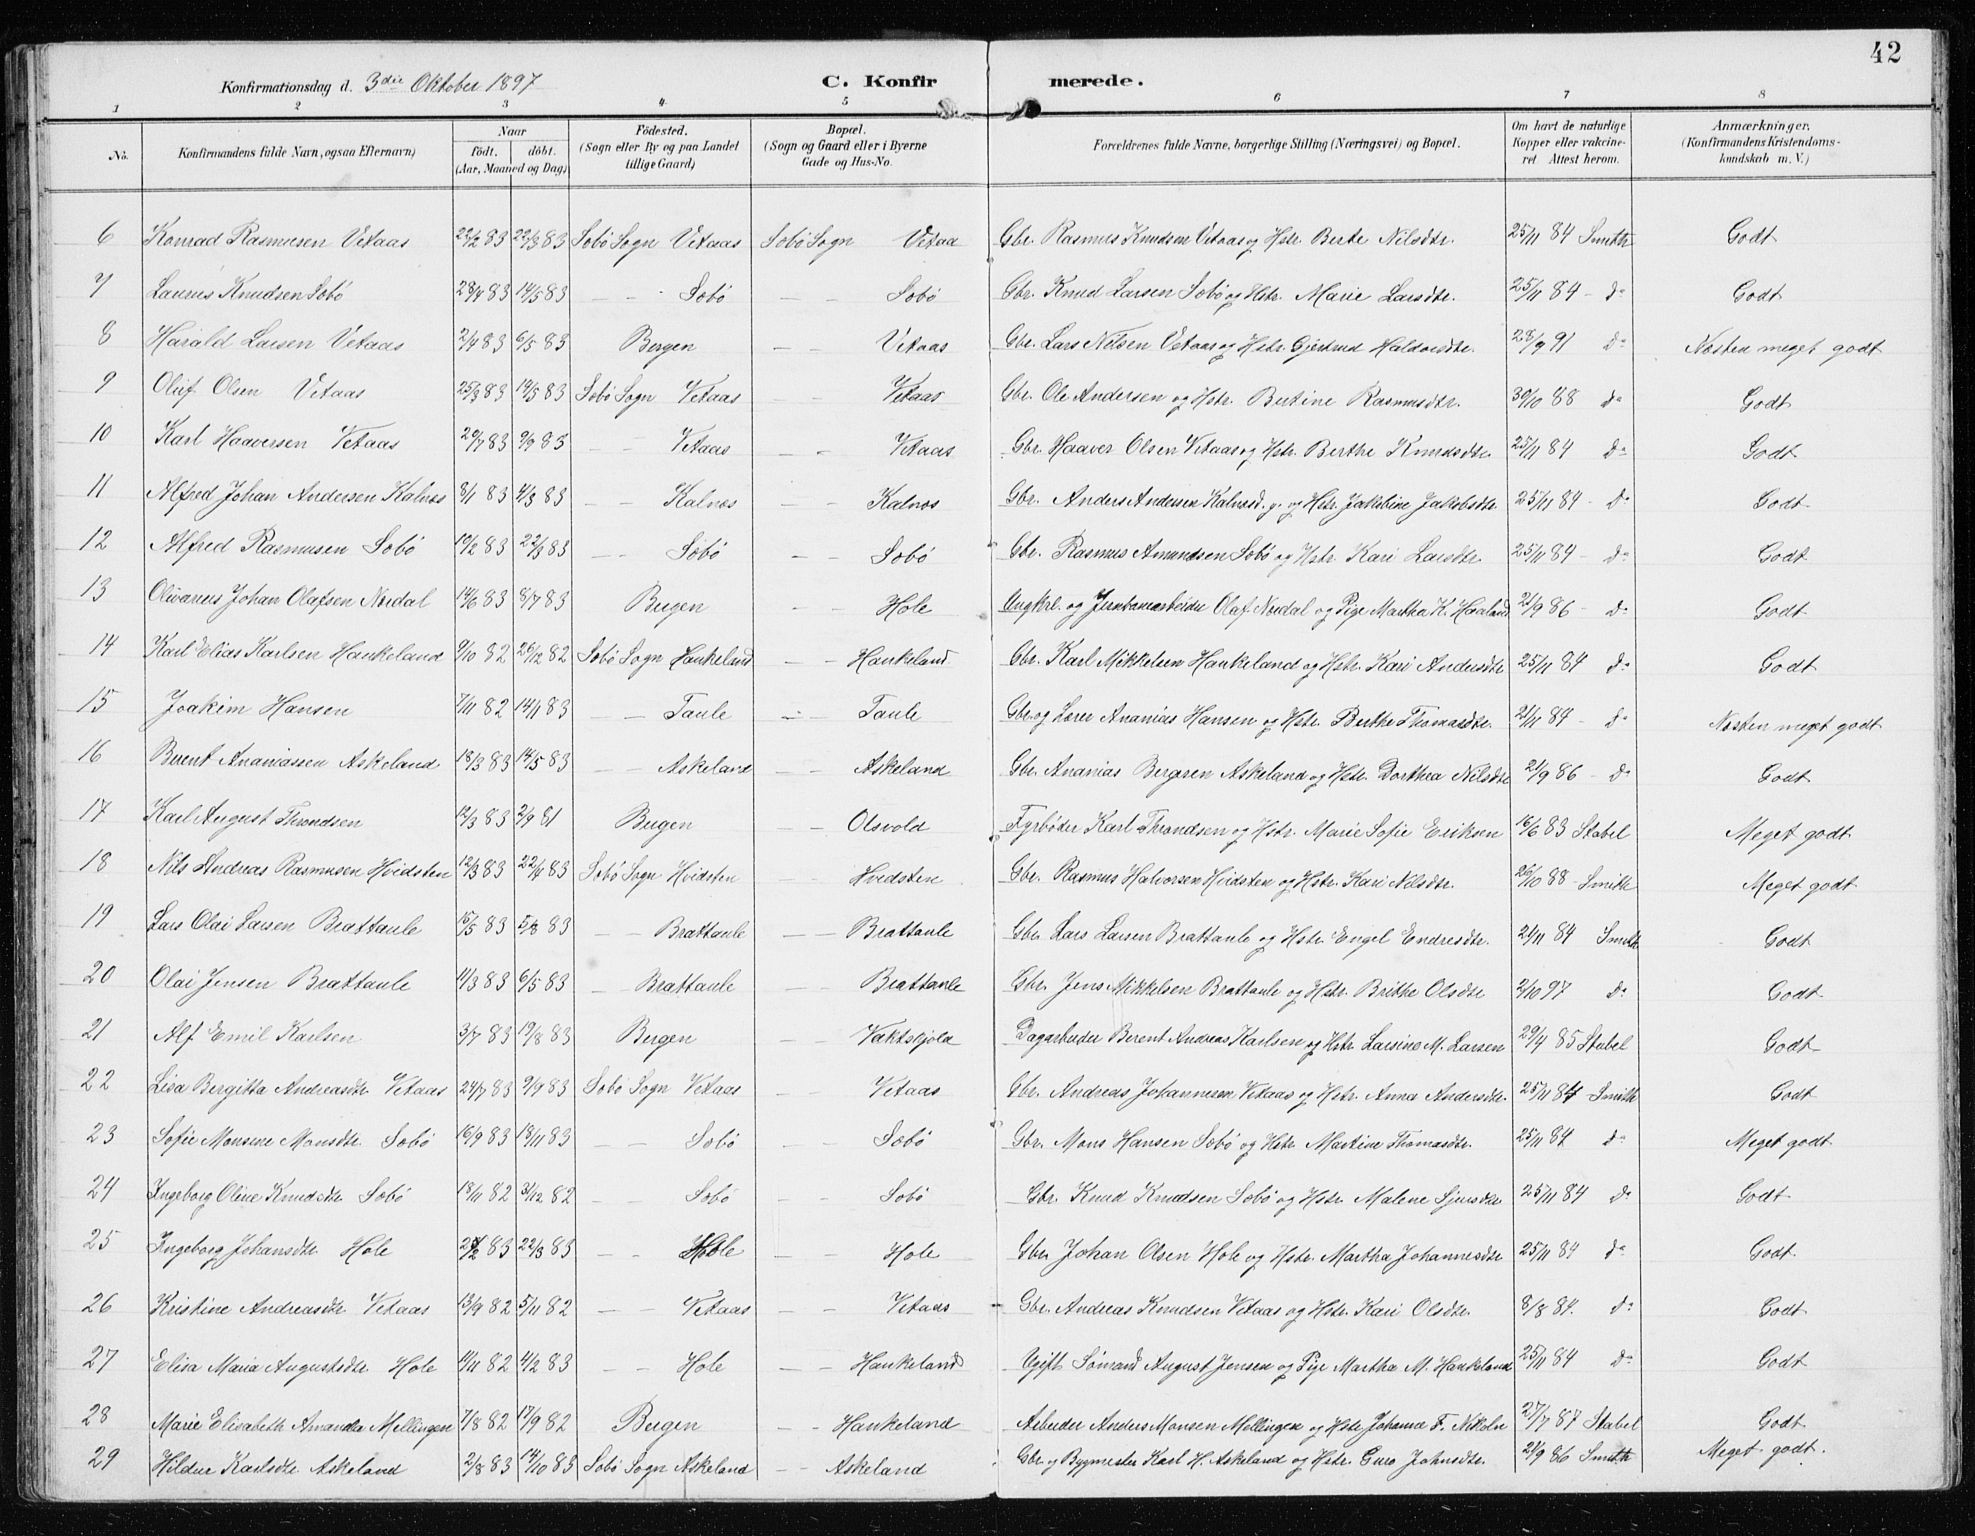 42
Konfirmationsdag d. 3die Oktober 1897 C. Konfirmerede.
1 2 3 4 5 6 7 8
No. Konfirmandens fulde Navn, ogsaa Efternavn) Naar födt. döbt. (Aar, Maaned og Dag) Födested. (Sogn eller By og paa Landet tillige Gaard) Bopæl. (Sogn og Gaard eller i Byerne Gade og Hus-No. Forældrenes fulde Navne, borgerlige Stilling (Næringsvei) og Bopæl. Om havt de naturlige Kopper eller vakcineret. Attest herom. Anmærkninger. (Konfirmandens Kristendomskundskab m. V.)
6 Konrad Rasmusen Vetaas 22/2 83 22/3 83 Söbö Sogn Vetaas Söbö Sogn Vetaa Gbr. Rasmus Knudsen Vetaas og Hstr. Berte Nilsdtr. 25/11 84 Smith Godt
7 Laurus Knudsen Söbö 23/4 83 14/5 83 — — Söbö — — Söbö Gbr. Knud Larsen Söbö og Hstr. Marie Larsdtr. 25/11 84 - do Godt
8 Harald Larsen Vetaas 2/4 83 6/5 83 Bergen — Vetaas Gbr. Lars Nilsen Vetaas og Hstr. Gjertrud Haldorsdtr. 28/9 91 do Næsten meget godt
9 Oluf Olsen Vetaas 25/3 83 14/5 83 Söbö Sogn Vetaas — — Vetaas Gbr. Ole Andersen og Hstr. Bertine Rasmusdtr. 30/10 88 do Godt
10 Karl Haaversen Vetaas 29/7 83 9/9 83 — — Vetaas — — Vetaas Gbr. Haaver Olsen Vetaas og Hstr. Berthe Knudsdtr. 25/11 84 do Godt
11 Alfred Johan Andersen Kalnes 8/1 83 4/3 83 — — Kalnes — — Kalnes Gbr. Anders Andersen Kalnes d. y. og Hstr. Jakobine Jakobsdtr. 25/11 84 - do Godt
12 Alfred Rasmusen Söbö 19/2 83 22/3 83 — — Söbö — — Söbö Gbr. Rasmus Amundsen Söbö og Hstr. Kari Larsdtr. 25/11 84 - do Godt
13 Olivarius Johan Olafsen Nordal 14/6 83 8/7 83 Bergen — — Hole Ungkrl. og Jernbanearbeider Olaf Nordal og Pige Martha K. Haaland 21/9 86 - do Godt
14 Karl Elias Karlsen Haukeland 9/10 82 26/12 82 Söbö Sogn Haukeland — — Haukeland Gbr. Karl Mikkelsen Haukeland og Hstr. Kari Andersdtr 25/11 84 do Godt
15 Joakim Hansen 7/11 82 14/1 83 — — Taule — Taule Gbr. og Lærer Ananias Hansen og Hstr. Berthe Thomasdtr. 21/11 84 - do Næsten meget godt
16 Berent Ananiassen Askeland 18/3 83 14/5 83 — — Askeland — — Askeland Gbr. Ananias Bergesen Askeland og Hstr. Dorthea Nilsdtr 21/9 86 - do Godt
17 Karl August Throndsen 12/3 83 2/9 81 Bergen — Olsvold Fyrbøder Karl Throndsen og Hstr. Marie Sofie Eriksen 16/6 83 Stabel Meget godt
18 Nils Andreas Rasmusen Hvidsten 12/3 83 22/4 83 Söbö Sogn Hvidsten — — Hvidsten Gbr. Rasmus Halvorsen Hvidsten og Hstr. Kari Nilsdtr. 26/10 88 - Smith Meget godt
19 Lars Olai Larsen Brattaule 15/5 83 5/8 83 — — Brattaule — — Brattaule Gbr. Lars Larsen Brattaule og Hstr. Engel Endresdtr. 21/11 84 Smith Godt
20 Olai Jensen Brattaule 11/3 83 6/5 83 — — Brattaule — — Brattaule Gbr. Jens Mikkelsen Brattaule og Hstr. Brithe Olsdtr 2/10 97 do Godt
21 Alf Emil Karlsen 3/7 83 19/8 83 Bergen — — Vaktskjold Dagarbeider Berent Andreas Karlsen og Hstr Larsine M. Larsen 29/4 85 Stabel Godt
22 Lisa Bergitta Andreasdtr Vetaas 24/7 83 9/9 83 Söbö Sogn Vetaas — — Vetaas Gbr. Andreas Johannesen Vetaas og Hstr. Anna Andersdtr. 25/11 84 Smith Godt
23 Sofie Monsine Monsdtr Söbö 16/9 83 18/11 83 — — Söbö — — Söbö Gbr. Mons Hansen Söbö og Hstr Martine Thomasdtr. 25/11 84 do Meget godt
24 Ingeborg Oline Knudsdtr Söbö 18/11 82 3/12 82 — — Söbö — — Söbö Gbr. Knud Knudsen Söbö og Hstr. Malene Sjursdtr 25/11 84 do Godt
25 Ingeborg Johansdtr Hole 83 22/3 83 — — Hole — — Hole Gbr. Johan Olsen Hole og Hstr. Martha Johannesdtr 25/11 84 do Godt
26 Kristine Andreasdtr Vetaas 13/9 82 5/11 82 — — Vetaas — — Vetaas Gbr. Andreas Knudsen Vetaas og Hstr. Kari Olsdtr. 8/8 84. do Godt
27 Elisa Maria Augustsdtr Hole 11/11 82 4/2 83 — Hole — — Haukeland Ugift Sömand August Jensen og Pige Martha M. Haukeland 25/11 84 do Godt
28 Marie Elisabeth Amanda Mellingen 7/8 82 17/9 82 Bergen — — Haukeland Arbeider Anders Monsen Mellingen og Hstr Johanne F. 27/7 87 Stabel Godt
29 Hildur Karlsdtr Askeland 2/8 83 14/10 83 Söbö Sogn Askeland — — Askeland Gbr. og Bygmester Karl H. Askeland og Hstr. Guro Johnsdtr. 21/9 86 Smith Meget godt.